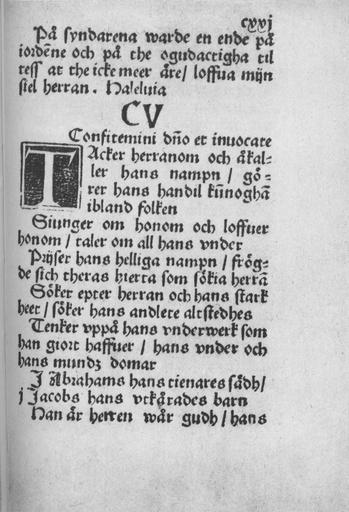 cxvj
På syndarena warde en ende på
iordēne och på the ogudactigha til
tess at the icke meer äre/ loffua mijn
siel herran. Haleluia
CV
Confitemini dño et inuocate
TAcker herranom och åkal-
ler hans nampn / gö-
rer hans handil kūnoghā
ibland folken
Siunger om honom och loffuer
honom / taler om all hans vnder
Prijser hans helliga nampn / frög-
de sich theras hierta som sökia herrā
Söker epter herran och hans stark
heet / söker hans andlete altstedhes
Tenker vppå hans vnderwerk som
han giort haffuer / hans vnder och
hans mundz domar
J Abrahams hans tienares sädh/
j Jacobs hans vtkårades barn
Han är herren wår gudh / hans